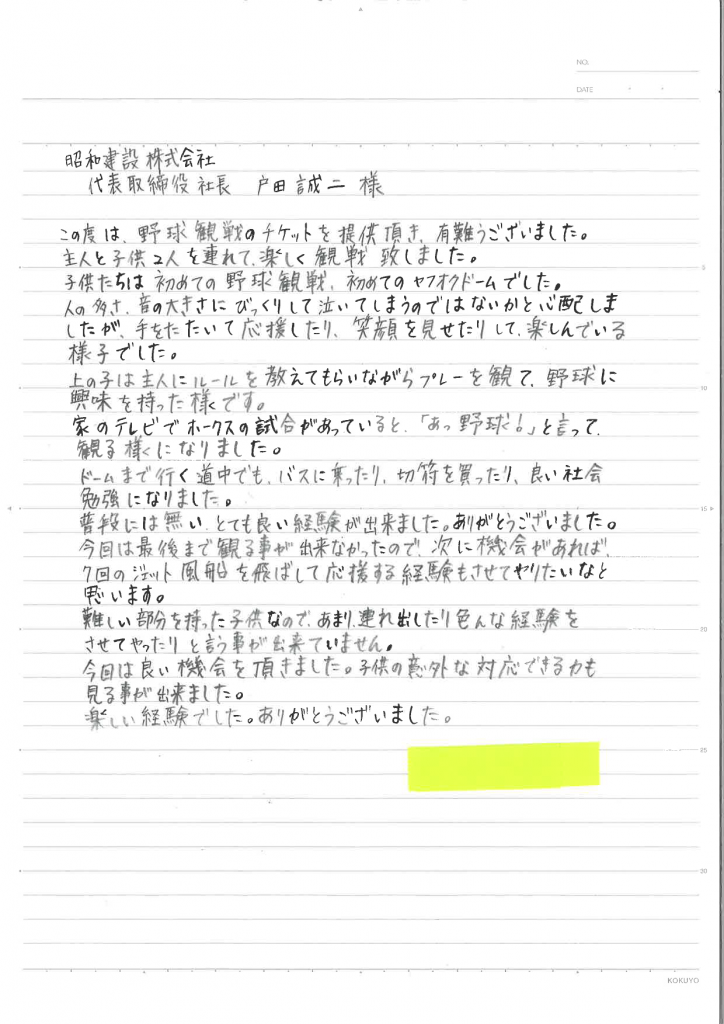 NO.
DATE
昭和建設株式会社
代表取締役社長 戸田誠二様
この度は、野球観戦のチケットを提供頂き、有難うございました。
主人と子供2人を連れて、楽しく観戦致しました。
子供たちは初めての野球観戦、初めてのヤフオクドームでした。
人の多さ、音の大きさにびっくりして泣いてしまうのではないかと心配しま
したが、手をたたいて応援したり、笑顔を見せたりして、楽しんでいる
様子でした。
上の子は主人にルールを教えてもらいながらプレーを観て、野球に
興味を持った様です。
家のテレビでホークスの試合があっていると、「あっ野球!」と言って、
観る様になりました。
ドームまで行く道中でも、バスに乗ったり、切符を買ったり、良い社会
勉強になりました。
普段には無い、とても良い経験が出来ました。ありがとうございました。
今回は最後まで観る事が出来なかったので、次に機会があれば、
7回のジェット風船を飛ばして応援する経験もさせてやりたいなと
思います。
難しい部分を持った子供なので、あまり、連れ出したり色んな経験を
させてやったりと言う事が出来ていません。
今回は良い機会を頂きました。子供の意外な対応できる力も
見る事が出来ました。
楽しい経験でした。ありがとうございました。
5
10
15
20
25
30
KOKUYO